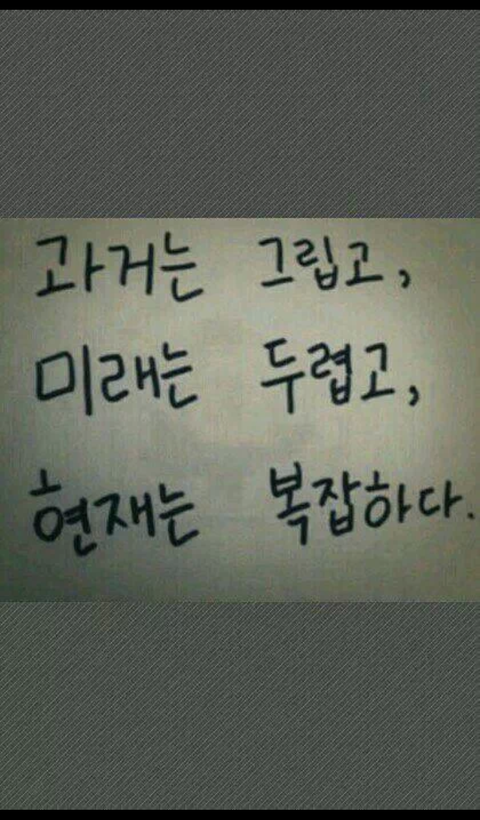 과거는 그립고,
미래는 두렵고,
현재는 복잡하다.